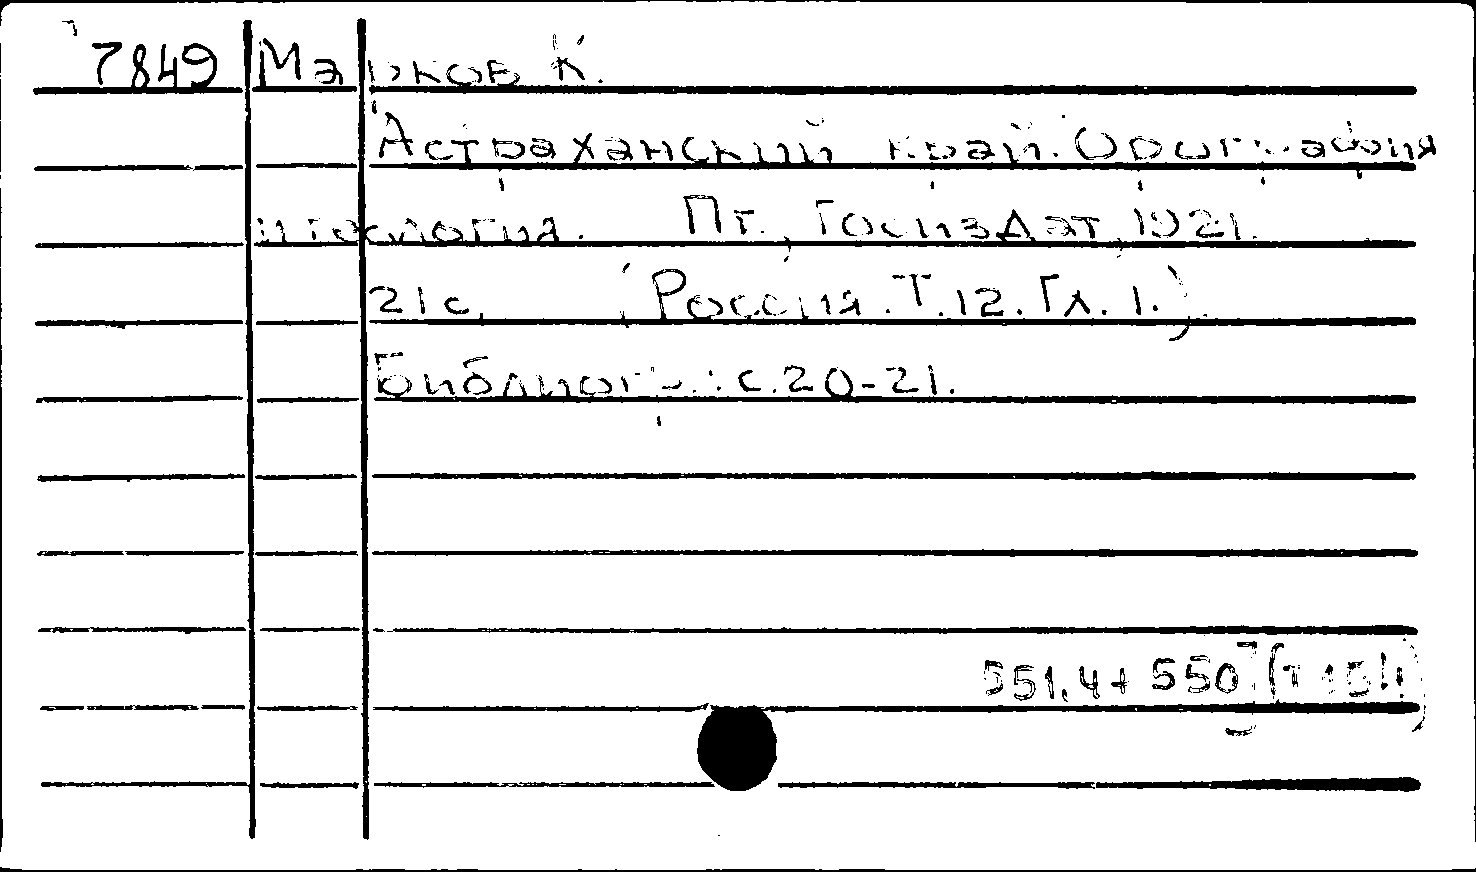 7849 Марков К.
Астраханский край. Орография
и геология. Пг., Госиздат, 1921.
21 с. (Россия. Т.12. Гл. 1.)
Библиогр.: с. 20-21.
551.4+550]